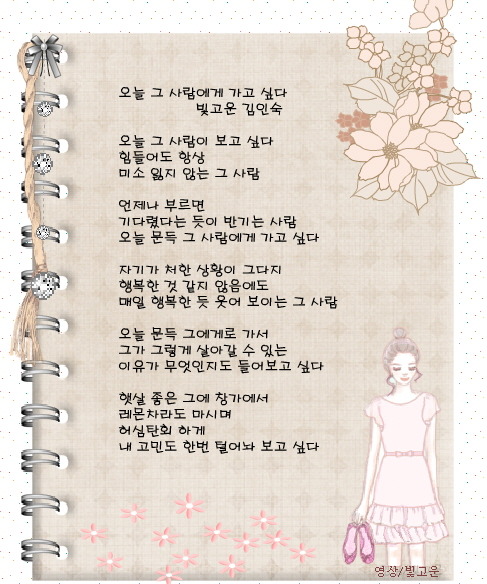 오늘 그 사람에게 가고 싶다
빛고운 김인숙
오늘 그 사람이 보고 싶다
힘들어도 항상
미소 잃지 않는 그 사람
언제나 부르면
기다렸다는 듯이 반기는 사람
오늘 문득 그 사람에게 가고 싶다
자기가 처한 상황이 그다지
행복한 것 같지 않음에도
매일 행복한 듯 웃어 보이는 그 사람
오늘 문득 그에게로 가서
그가 그렇게 살아갈 수 있는
이유가 무엇인지도 들어보고 싶다
햇살 좋은 그에 창가에서
레몬차라도 마시며
허심탄회 하게
내 고민도 한번 털어놔 보고 싶다
영상/빛고운